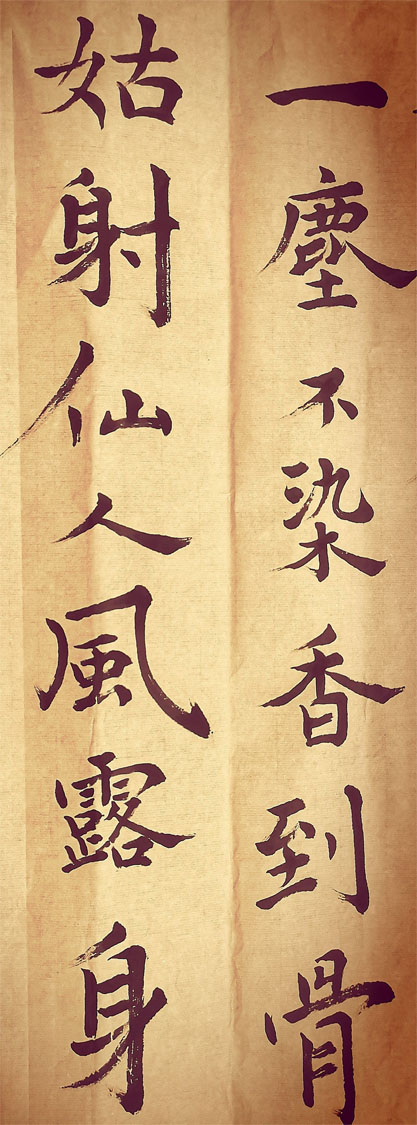 一塵不染香到骨
姑射仙人風露身